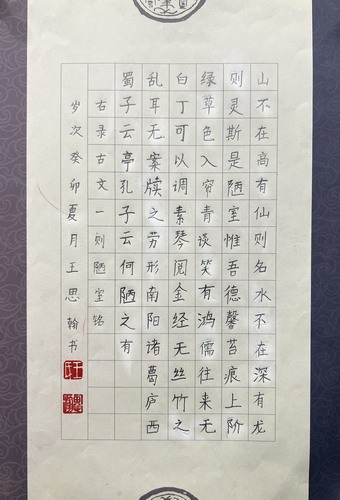 山不在高有仙则名水不在深有龙
则灵斯是陋室惟吾德馨苔痕上阶
绿草色入帘青谈笑有鸿儒往来无
白丁可以调素琴阅金经无丝竹之
乱耳无案牍之劳形南阳诸葛庐西
蜀子云亭孔子云何陋之有
右录古文一则陋室铭
岁次癸卯夏月王思翰书